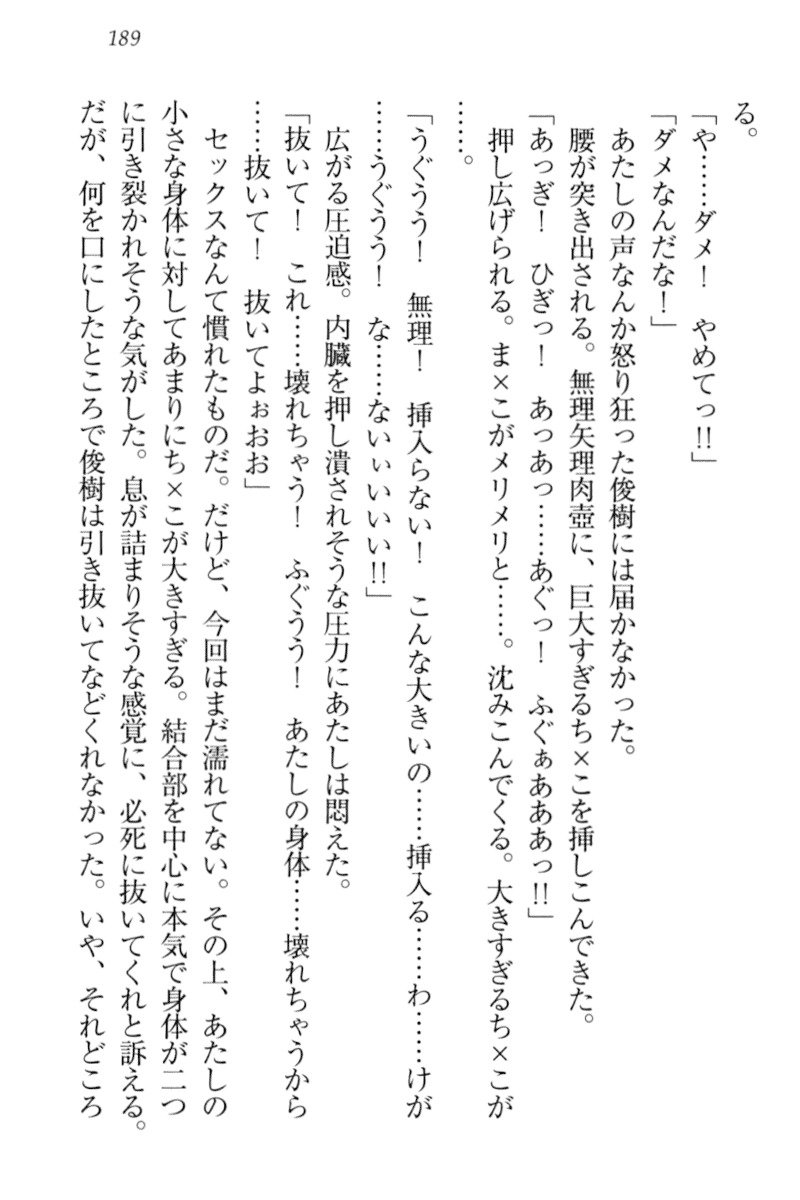 189
る。
「や……ダメ！　やめてっ!!」
「ダメなんだな！」
あたしの声なんか怒り狂った俊樹には届かなかった。
腰が突き出される。無理矢理肉壺に、巨大すぎるち×こを挿しこんできた。
「あっぎ！　ひぎっ！　あっあっ……あぐっ！　ふぐぁあああっ!!」
押し広げられる。ま×こがメリメリと……。沈みこんでくる。大きすぎるち×こが
……。
「うぐうう！　無理！　挿入らない！　こんな大きいの……挿入る……わ……けが
……うぐうう！　な……ないぃいいい!!」
広がる圧迫感。内臓を押し潰されそうな圧力にあたしは悶えた。
「抜いて！　これ……壊れちゃう！　ふぐうう！　あたしの身体……壊れちゃうから
……抜いて！　抜いてよぉおお」
セックスなんて慣れたものだ。だけど、今回はまだ濡れてない。その上、あたしの
小さな身体に対してあまりにち×こが大きすぎる。結合部を中心に本気で身体が二つ
に引き裂かれそうな気がした。息が詰まりそうな感覚に、必死に抜いてくれと訴える。
だが、何を口にしたところで俊樹は引き抜いてなどくれなかった。いや、それどころ